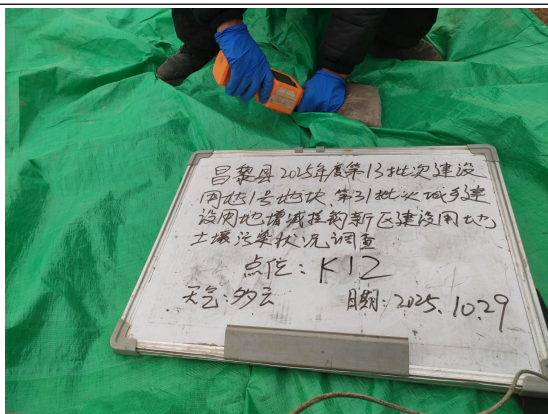 昌黎县2025年度第13批次建设
用地1号地块、第31批次城乡建
设用地增减挂钩新区建设用地
土壤污染状况调查
点位：K12
天气：多云 日期：2025.10.29